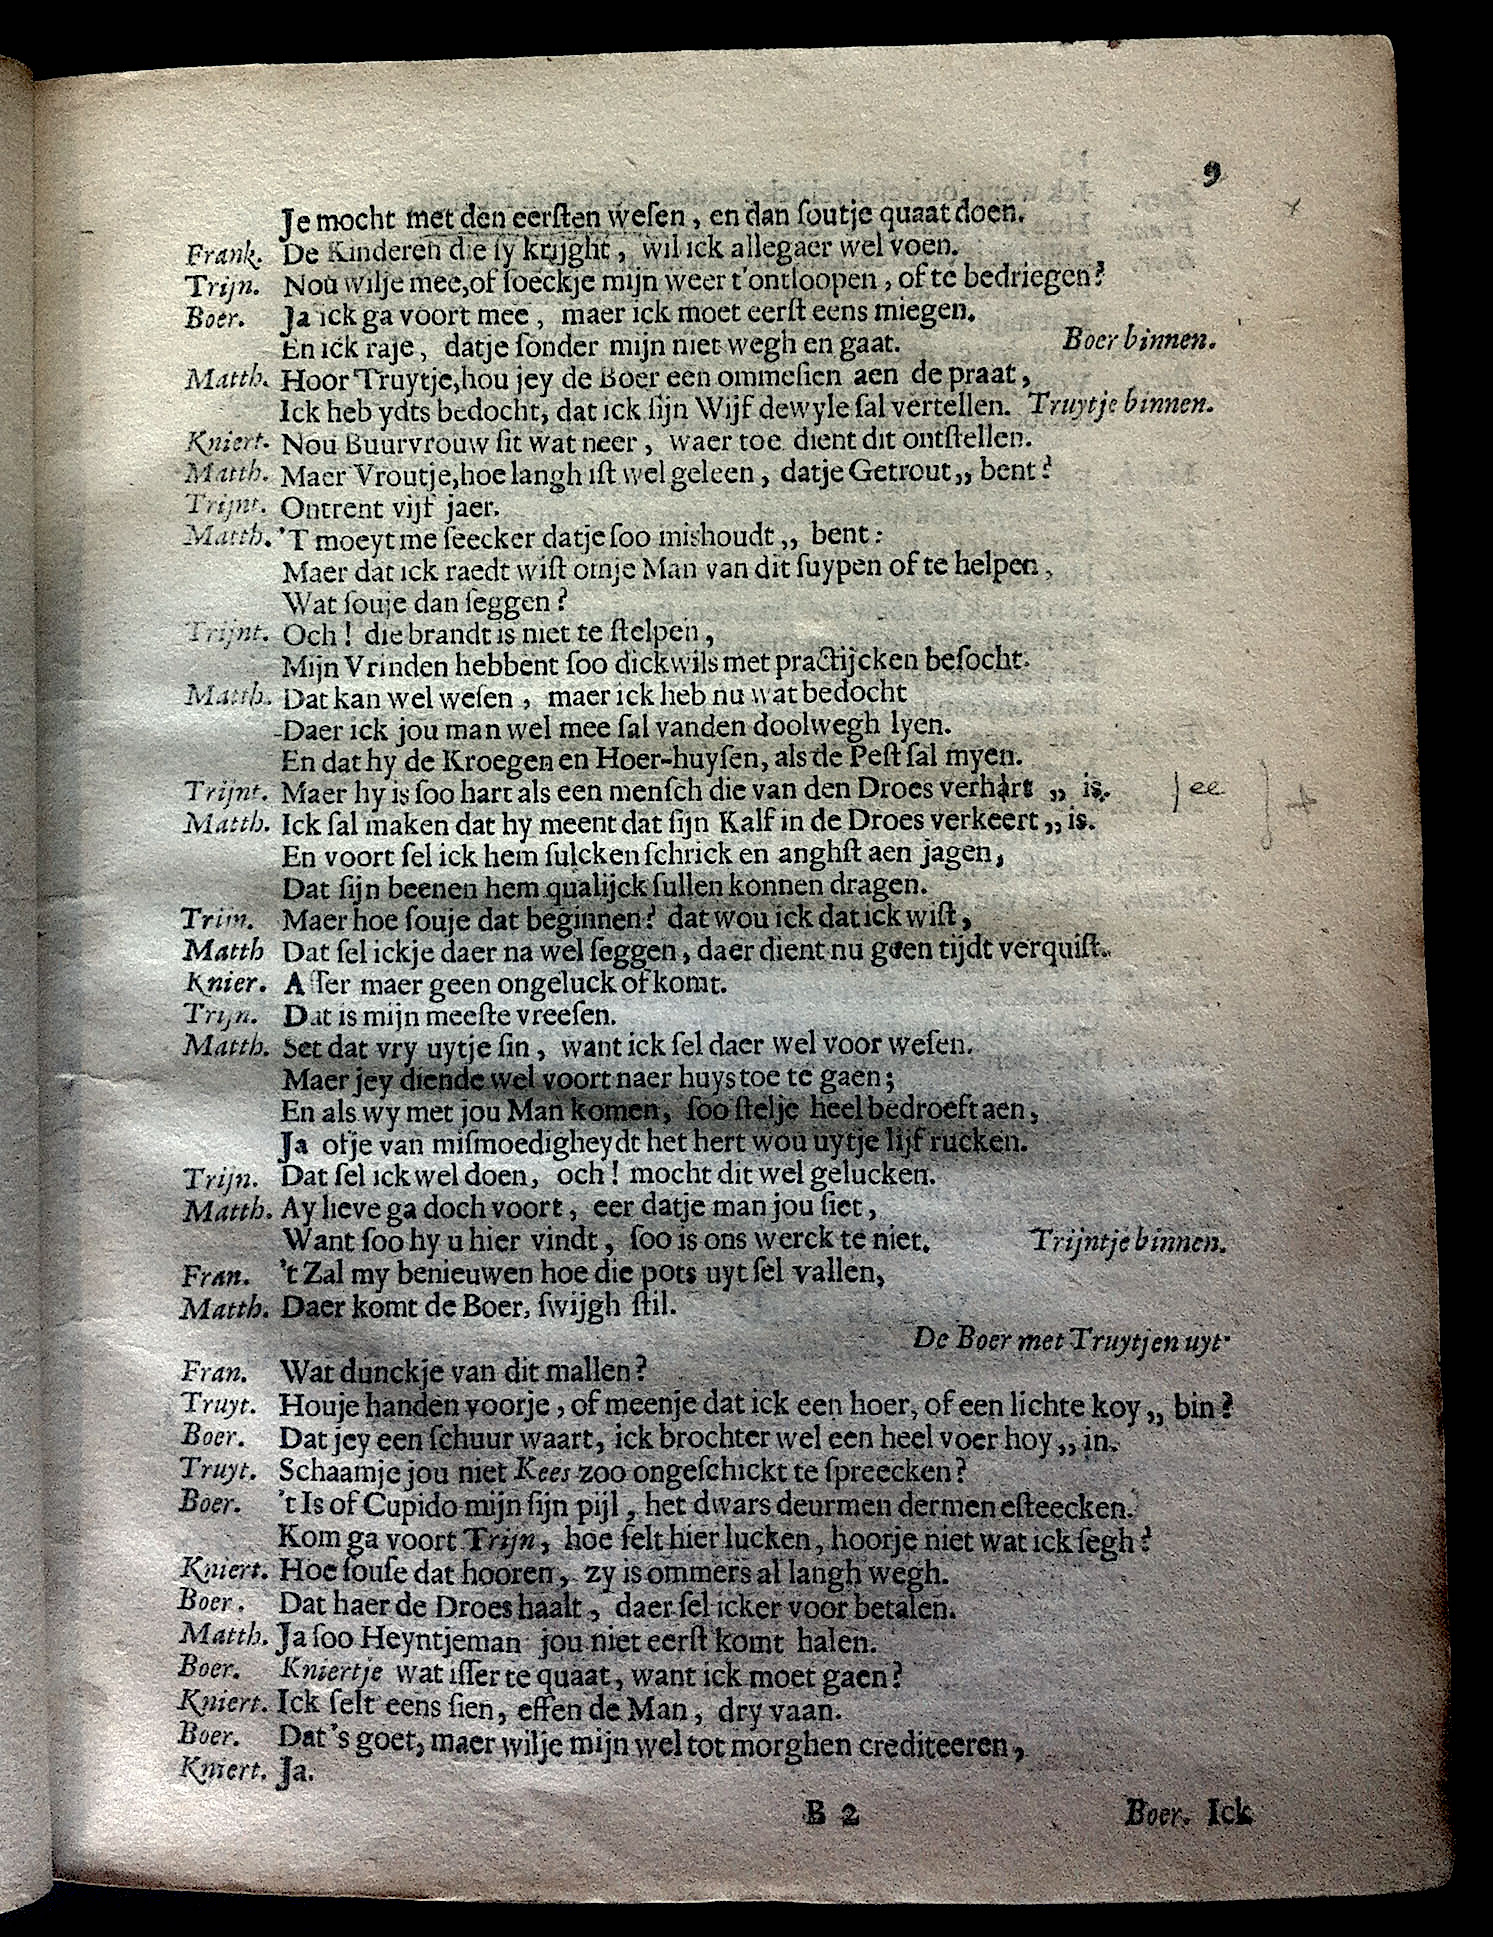 9
Je mocht met den eersten wesen, en dan soutje quaat doen.
Frank. De Kinderen die sy krijght, wil ick allegaer wel voen.
Trijn. Nou wilje mee, of soeckje mijn weer t'ontloopen, of te bedriegen?
Boer. Ja ick ga voort mee, maer ick moet eerst eens miegen.
En ick raje, datje sonder mijn niet wegh en gaat. Boer binnen.
Matth. Hoor Truytje, hou jey de Boer een ommesien aen de praat,
Ick heb ydts bedocht, dat ick sijn Wijf dewyle sal vertellen. Truytje binnen.
Kniert. Nou Buurvrouw sit wat neer, waer toe dient dit ontstellen.
Matth. Maer Vroutje, hoe langh ist wel geleen, datje Getrout,, bent?
Trijnt. Ontrent vijf jaer.
Matth. 'T moeyt me seecker datje soo mishoudt,, bent:
Maer dat ick raedt wist omje Man van dit suypen of te helpen,
Wat souje dan seggen?
Trijnt. Och! die brandt is niet te stelpen,
Mijn Vrinden hebbent soo dickwils met practijcken besocht.
Matth. Dat kan wel wesen, maer ick heb nu wat bedocht
Daer ick jou man wel mee sal vanden doolwegh lyen.
En dat hy de Kroegen en Hoer-huysen, als de Pest sal myen.
Trijnt. Maer hy is soo hart als een mensch die van den Droes verhart ,, is. | ee
Matth. Ick sal maken dat hy meent dat sijn Kalf in de Droes verkeert,, is.
En voort sel ick hem sulcken schrick en anghst aen jagen,
Dat sijn beenen hem qualijck sullen konnen dragen.
Trijn. Maer hoe souje dat beginnen? dat wou ick dat ick wist,
Matth Dat sel ickje daer na wel seggen, daer dient nu geen tijdt verquist.
Knier. Asser maer geen ongeluck of komt.
Trijn. Dat is mijn meeste vreesen.
Matth. Set dat vry uytje sin, want ick sel daer wel voor wesen.
Maer jey diende wel voort naer huys toe te gaen;
En als wy met jou Man komen, soo stelje heel bedroeft aen,
Ja ofje van mismoedigheydt het hert wou uytje lijf rucken.
Trijn. Dat sel ick wel doen, och! mocht dit wel gelucken.
Matth. Ay lieve ga doch voort, eer datje man jou siet,
Want soo hy u hier vindt, soo is ons werck te niet. Trijntje binnen.
Fran. 't Zal my benieuwen hoe die pots uyt sel vallen,
Matth. Daer komt de Boer, swijgh stil.
De Boer met Truytjen uyt.
Fran. Wat dunckje van dit mallen?
Truyt. Houje handen voorje, of meenje dat ick een hoer, of een lichte koy,, bin?
Boer. Dat jey een schuur waart, ick brochter wel een heel voer hoy,, in.
Truyt. Schaamje jou niet Kees zoo ongeschickt te spreecken?
Boer. 't Is of Cupido mijn sijn pijl, het dwars deur men dermen esteecken.
Kom ga voort Trijn, hoe selt hier lucken, hoorje niet wat ick segh?
Kniert. Hoe souse dat hooren, zy is ommers al langh wegh.
Boer. Dat haer de Droes haalt, daer sel icker voor betalen.
Matth. Ja soo Heyntjeman jou niet eerst komt halen.
Boer. Kniertje wat isser te quaat, want ick moet gaen?
Kniert. Ick selt eens sien, effen de Man, dry vaan.
Boer. Dat's goet, maer wilje mijn wel tot morghen crediteeren,
Kniert. Ja.
B 2 Boer. Ick